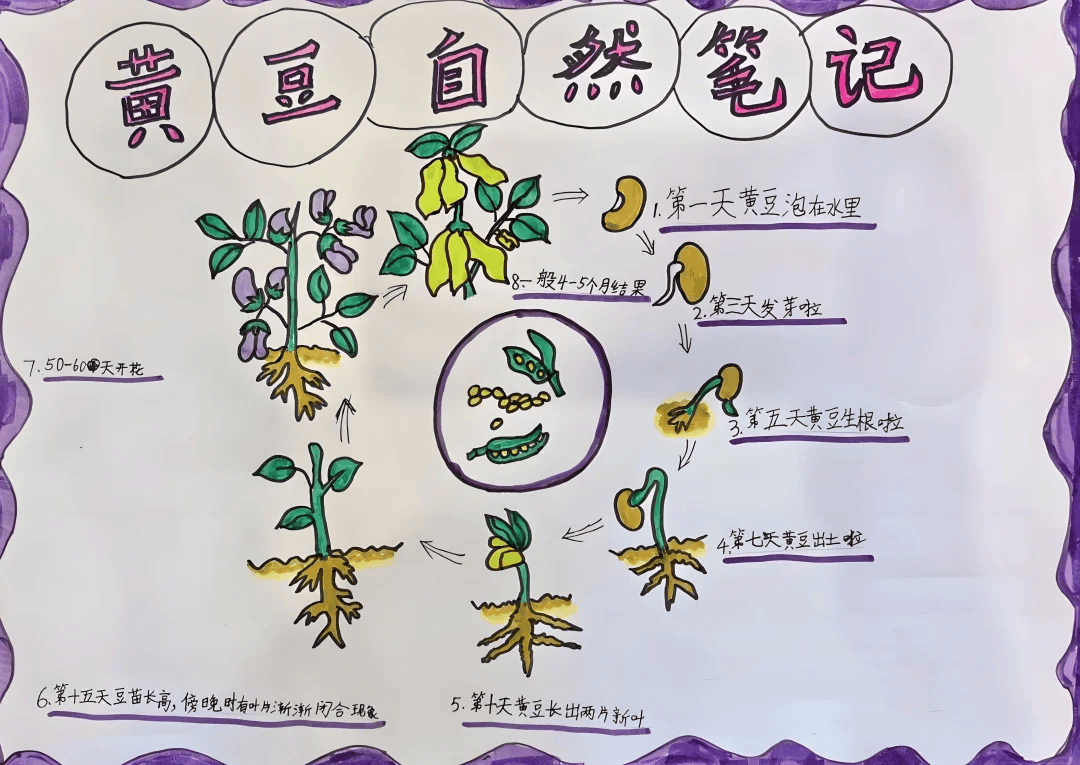 黄豆自然笔记
1.第一天黄豆泡在水里
2.第三天发芽啦
3.第五天黄豆生根啦
4.第七天黄豆出土啦
5.第十天黄豆长出两片新叶
6.第十五天豆苗长高,傍晚时有叶片渐渐闭合现象
7.50-60天开花
8.一般4-5个月结果